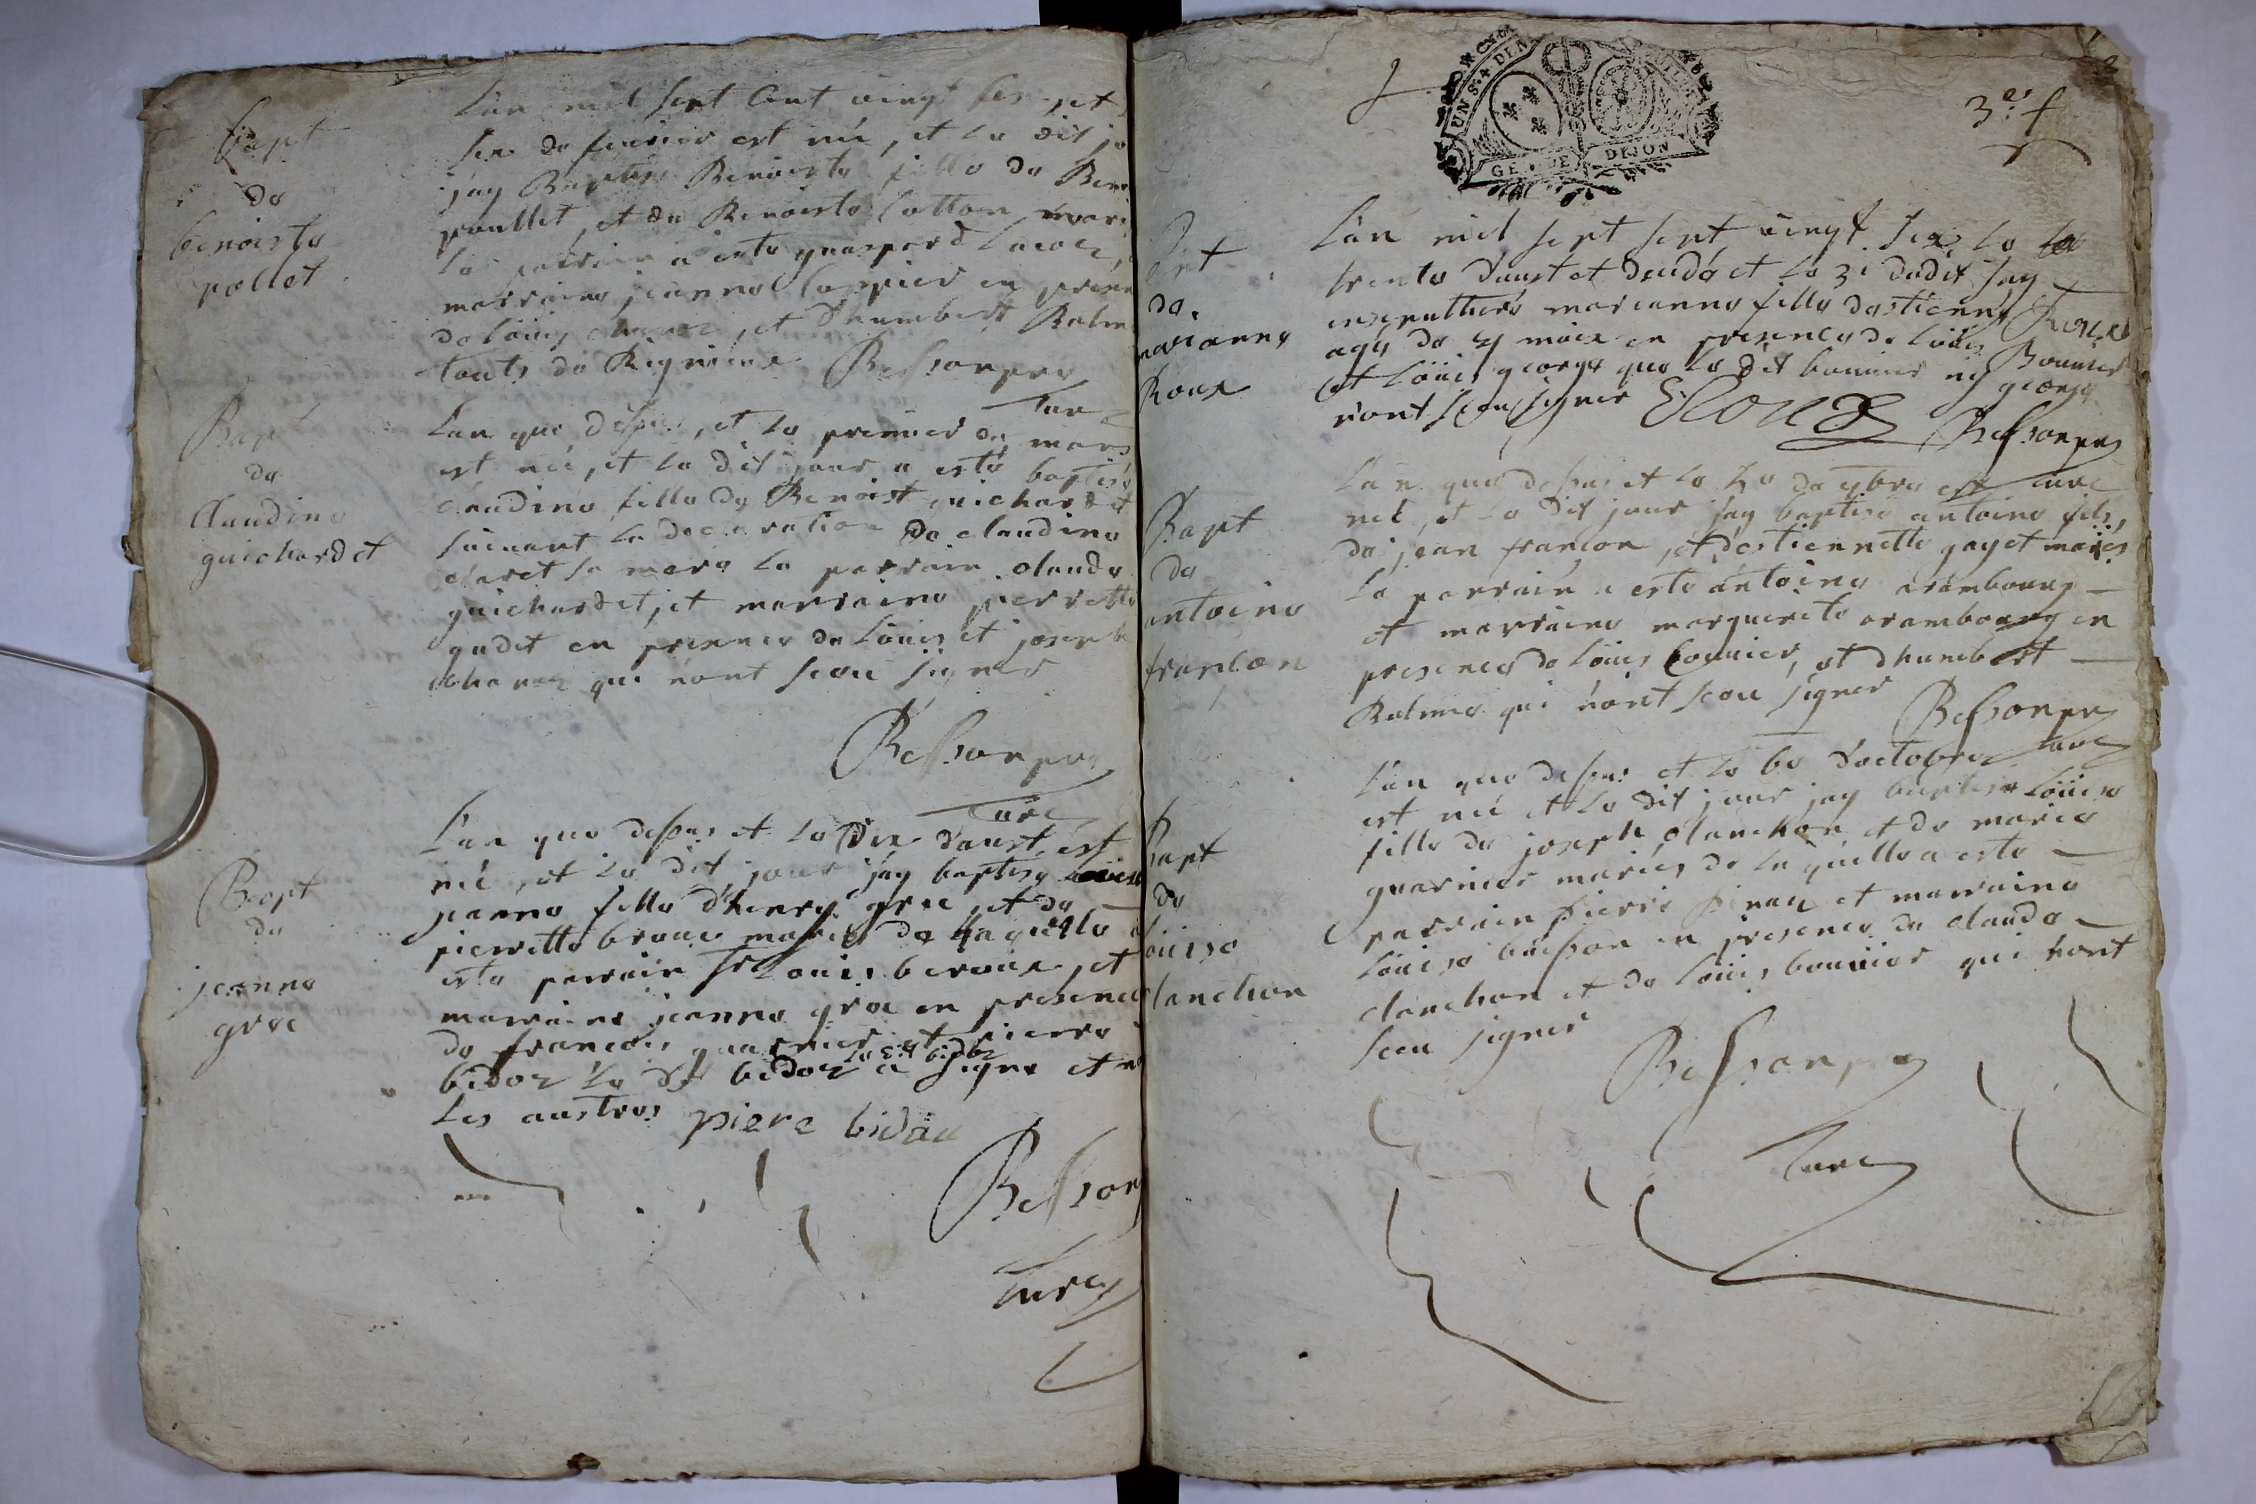 Bapt
de
benoiste
pollet
L'an mil sept Cent vingt six, et
six de feurier est né, et le dit jo
j'ay Baptise Benoiste fille de Ben
poullet, et de Benoiste Cotton, mari
le parrain a esté gaspard
marraine jeanne en presen
de Loüis, et d'humbert Balm
touts de Rignieux Besson pre
Curé
Bapt
de
Claudine
guichardet
L'an que dessus, et le premier de mars
est née, et le dit jour a esté baptisé
claudine fille de Benoist guichardet
suivant la declaration de claudine
claret sa mere le parrain claude
guichardet, et marraine pierrette
gudet en presence de Loüis et joseph
chanez qui n'ont sceu signer
Besson pre
Curé
Bapt
de
jeanne
gros
L'an que dessus et le dix d'aust est
né, et le dit jour j'ay baptisé
janne fille d'henry gros et de
pierrette broue mariés de laquelle a
esté parrain Sr Loüis beroux, et
marraine jeanne gros en presence
de francois guarnier et pierre
bidoz le dt bidoz a signé et n
les austres piere bidau
Besson
Curé
UN S. 4 DEN
GE . DE DIJON
3e f
Ent
de
marianne
Roux
L'an mil sept sept vingt six le
trente d'aust et decedé et le 31 dudit j'ay
enseputturé marianne fille d'estienne Roux
agé de mois en presence de Loüis Bouuier
et Loüis george que le dit bouuier ny george
n'ont sceu signer E Roux
Besson pre
Curé
Bapt
de
antoine
françon
L'an que dessus et le de 7bre est
né, et le dit jour j'ay baptisé antoine fils,
de jean françon, et d'estiennette gayet mariés
le parrain a esté antoine arambourg
et marraine marguerite arambourg en
presence de Loüis bouuier, et d'humbert
Balme qui n'ont sceu signer Besson pre
Curé
Bapt
de
loüise
clanchon
L'an que dessus et le d'octobre
est né et le dit jour j'ay baptisé Loüise
fille de joseph clanchon et de marie
guarnier mariés de laquelle a esté
parrain pierre pinau et marraine
Loüise buisson en presence de claude
clanchon et de Loüis bouuier qui n'ont
sceu signer
Besson pre
Curé